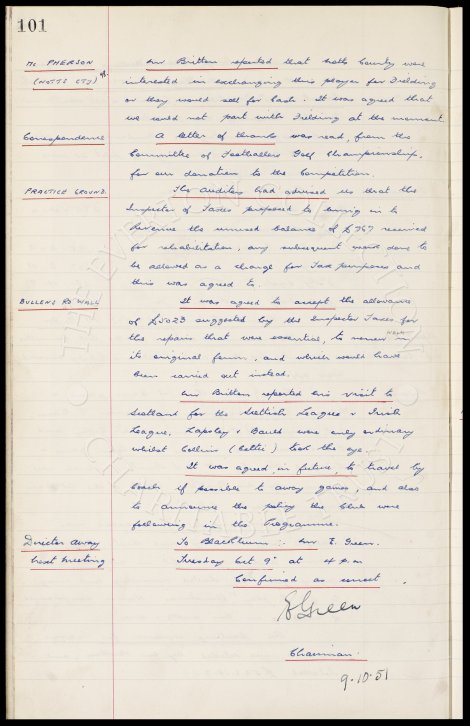 101
Mc PHERSON
(NOTTS CTY)
Mr Britton reported that Notts County were
interested in exchanging this player for Fielding
or they would sell for Cash. It was agreed that
we could not part with Fielding at the moment.
Correspondence
A letter of thanks was read, from the
Committee of Footballers Golf Championship,
for our donation to the Competition.
PRACTICE GROUND.
The Auditors had advised us that the
Inspector of Taxes proposed to bring in to
Revenue the unused balance of £767 received
for rehabilitation, any subsequent work done to
be allowed as a charge for Tax purposes and
this was agreed to.
BULLENS RD WALL
It was agreed to accept the allowance
of £5023 suggested by the Inspector Taxes for
the repairs that were essential, to renew WALL in
its original form, and which would have
been carried out instead.
Mr Britton reported his visit to
Scotland for the Scottish League v Irish
League. Lapsley & Bauld were only ordinary
whilst Collins (Celtic) took the eye.
It was agreed in future, to travel by
Coach if possible to away games, and also
to announce the policy the Club were
following in the Programme.
Director Away
To Blackburn :- Mr E. Green.
Next Meeting
Tuesday Oct 9th at 4 p.m
Confirmed as correct.
E Green
Chairman.
9.10.51
THE EVERTON
CHARITABLE TRUST